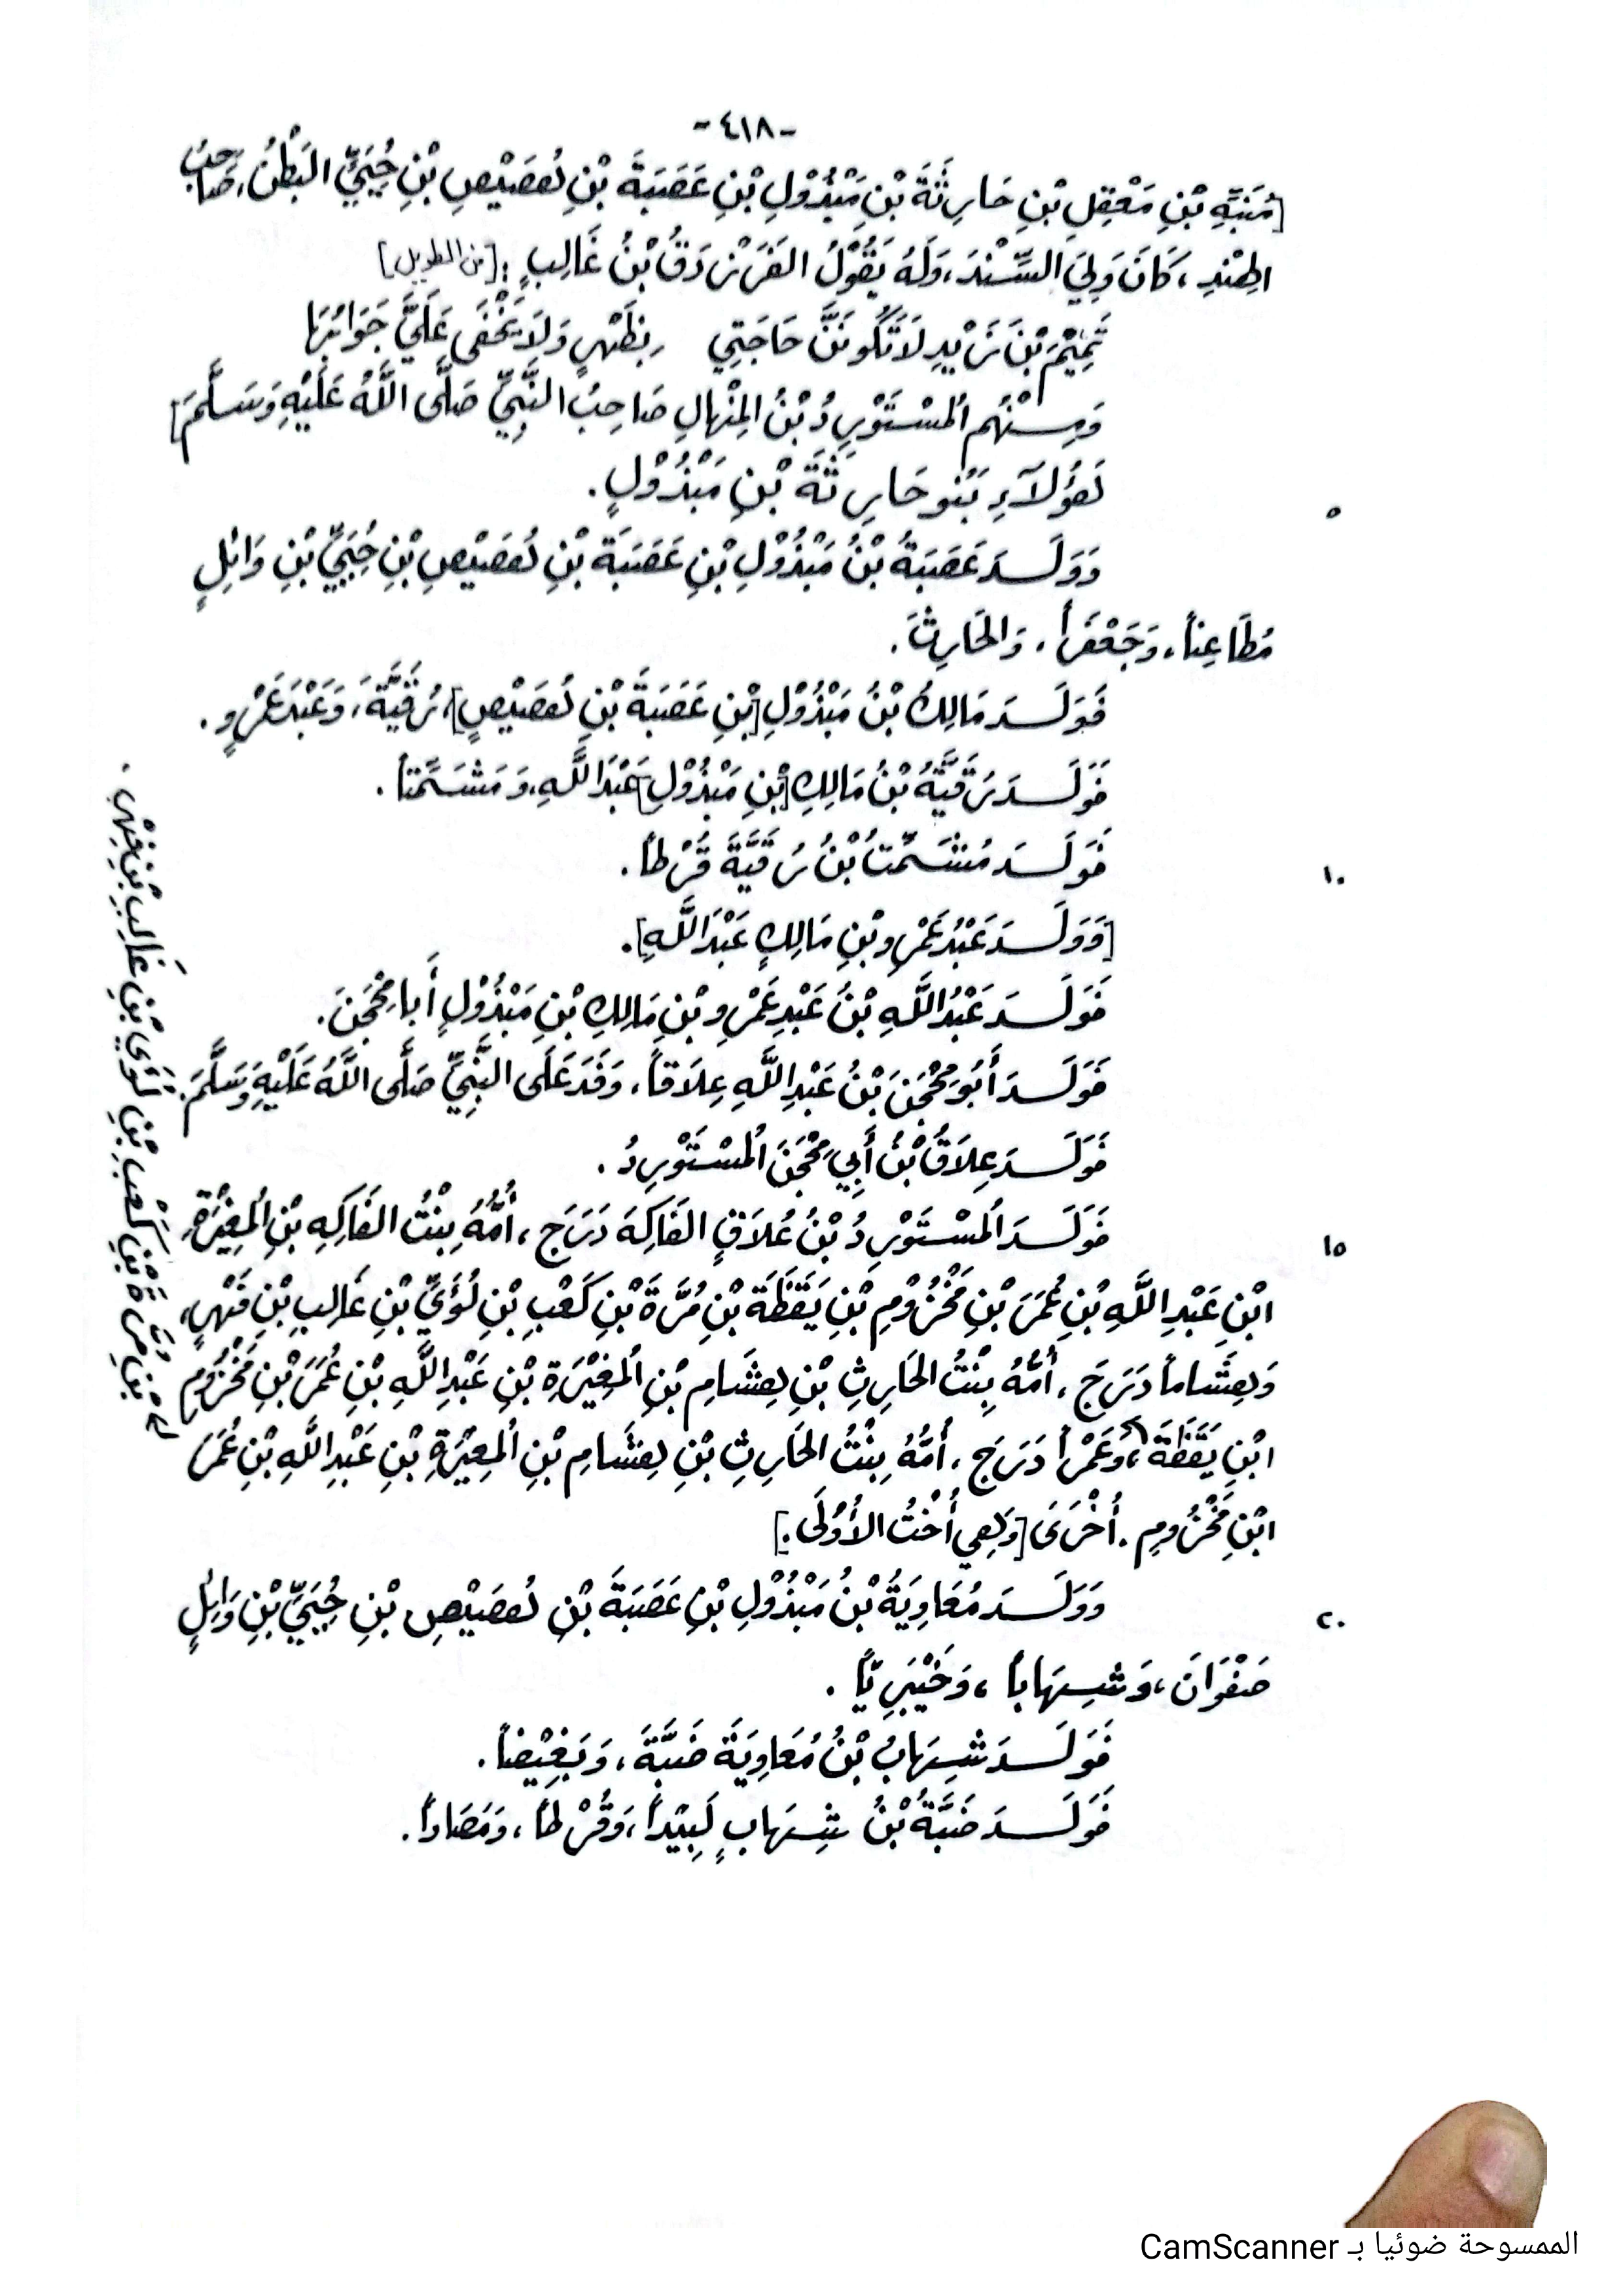 -٤١٨-
[مُنَبِّهِ بْنِ مَعْقِلِ بْنِ حَارِثَةَ بْنِ مَبْذُوْلِ بْنِ عَصَبَةَ بْنِ هُصَيْصِ بْنِ حُيَيِّ البَطْنُ، صَاحِبُ
الهِنْدِ، كَانَ وَلِيَ السِّنْدَ، وَلَهُ يَقُوْلُ الفَرَزْدَقُ بْنُ غَالِبٍ: [من الطويل]
تَمِيْمَ بْنَ زَيْدٍ لَا تَكُونَنَّ حَاجَتِي بِظَهْرٍ وَلَا يَخْفَى عَلَيَّ جَوَابُهَا
وَمِنْهُم المُسْتَوْرِدُ بْنُ المِنْهَالِ صَاحِبُ النَّبِيِّ صَلَّى اللَّهُ عَلَيْهِ وَسَلَّمَ]
هَؤُلَآءِ بَنُو حَارِثَةَ بْنِ مَبْذُوْلٍ.
٥
وَوَلَدَ عَصَبَةُ بْنُ مَبْذُوْلِ بْنِ عَصَبَةَ بْنِ هُصَيْصِ بْنِ حُيَيِّ بْنِ وَائِلٍ
مُطَاعِناً، وَجَعْفَراً، وَالحَارِثَ.
فَوَلَدَ مَالِكُ بْنُ مَبْذُوْلِ [بْنِ عَصَبَةَ بْنِ هُصَيْصٍ]، رُقَيَّةَ، وَعَبْدَ عَمْرٍو.
فَوَلَدَ رُقَيَّةُ بْنُ مَالِكِ [بْنِ مَبْذُوْلِ] عَبْدَ اللَّهِ، وَمُشَمِّتاً.
فَوَلَدَ مُشَمِّتُ بْنُ رُقَيَّةَ قُرْطاً.
١٠
[وَوَلَدَ عَبْدُ عَمْرِو بْنِ مَالِكٍ عَبْدَ اللَّهِ].
فَوَلَدَ عَبْدُ اللَّهِ بْنُ عَبْدِ عَمْرِو بْنِ مَالِكِ بْنِ مَبْذُوْلٍ أَبَا مِحْجَنَ.
فَوَلَدَ أَبُو مِحْجَنَ بْنُ عَبْدِ اللَّهِ عِلَاقاً، وَفَدَ عَلَى النَّبِيِّ صَلَّى اللَّهُ عَلَيْهِ وَسَلَّمَ.
فَوَلَدَ عِلَاقُ بْنُ أَبِي مِحْجَنَ المُسْتَوْرِدُ.
فَوَلَدَ المُسْتَوْرِدُ بْنُ عُلَاقٍ الفَاكِهَ دَرَجَ، أُمُّهُ بِنْتُ الفَاكِهِ بْنِ المُغِيْرَةِ
١٥
ابْنِ عَبْدِ اللَّهِ بْنِ عُمَرَ بْنِ مَخْزُوْمِ بْنِ يَقَظَةَ بْنِ مُرَّةَ بْنِ كَعْبِ بْنِ لُؤَيِّ بْنِ غَالِبِ بْنِ فِهْرٍ،
وَهِشَاماً دَرَجَ، أُمُّهُ بِنْتُ الحَارِثِ بْنِ هِشَامِ بْنِ المُغِيْرَةِ بْنِ عَبْدِ اللَّهِ بْنِ عُمَرَ بْنِ مَخْزُوْمٍ
ابْنِ يَقَظَةَ، وَعَمْراً دَرَجَ، أُمُّهُ بِنْتُ الحَارِثِ بْنِ هِشَامِ بْنِ المُغِيْرَةِ بْنِ عَبْدِ اللَّهِ بْنِ عُمَرَ
ابْنِ مَخْزُومٍ. أُخْرَى [وَهِي أُخْتُ الأُوْلَى.]
وَوَلَدَ مُعَاوِيَةُ بْنُ مَبْذُوْلِ بْنِ عَصَبَةَ بْنِ هُصَيْصِ بْنِ حُيَيِّ بْنِ وَائِلٍ
٢٠
صَفْوَانَ، وَشِهَاباً، وَخَيْبَرِيّاً.
فَوَلَدَ شِهَابُ بْنُ مُعَاوِيَةَ ضَبَّةَ، وَبَغِيْضاً.
فَوَلَدَ ضَبَّةُ بْنُ شِهَابٍ لَبِيْداً، وَقُرْطاً، وَمَصَاداً.
بْنِ مُرَّةَ بْنِ كَعْبِ بْنِ لُؤَيِّ بْنِ غَالِبِ بْنِ فِهْرٍ.
الممسوحة ضوئيا بـ CamScanner